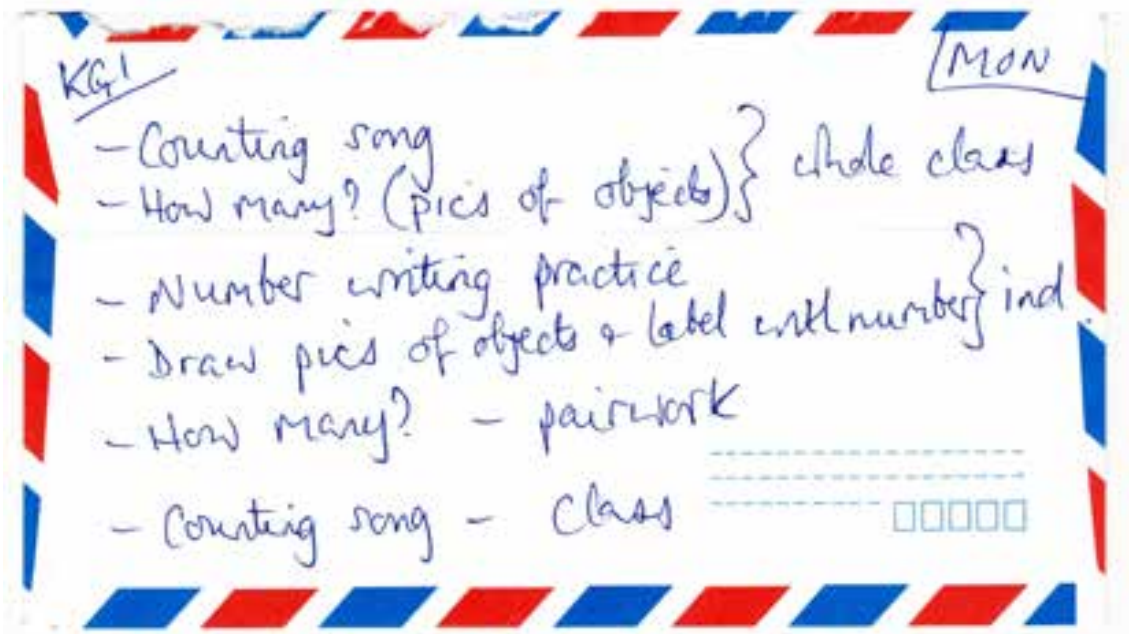 KG1 MON
- Counting song
- How many? (pics of objects) } whole class
- Number writing practice
- Draw pics of objects & label with number } ind.
- How many? - pairwork
- Counting song - class